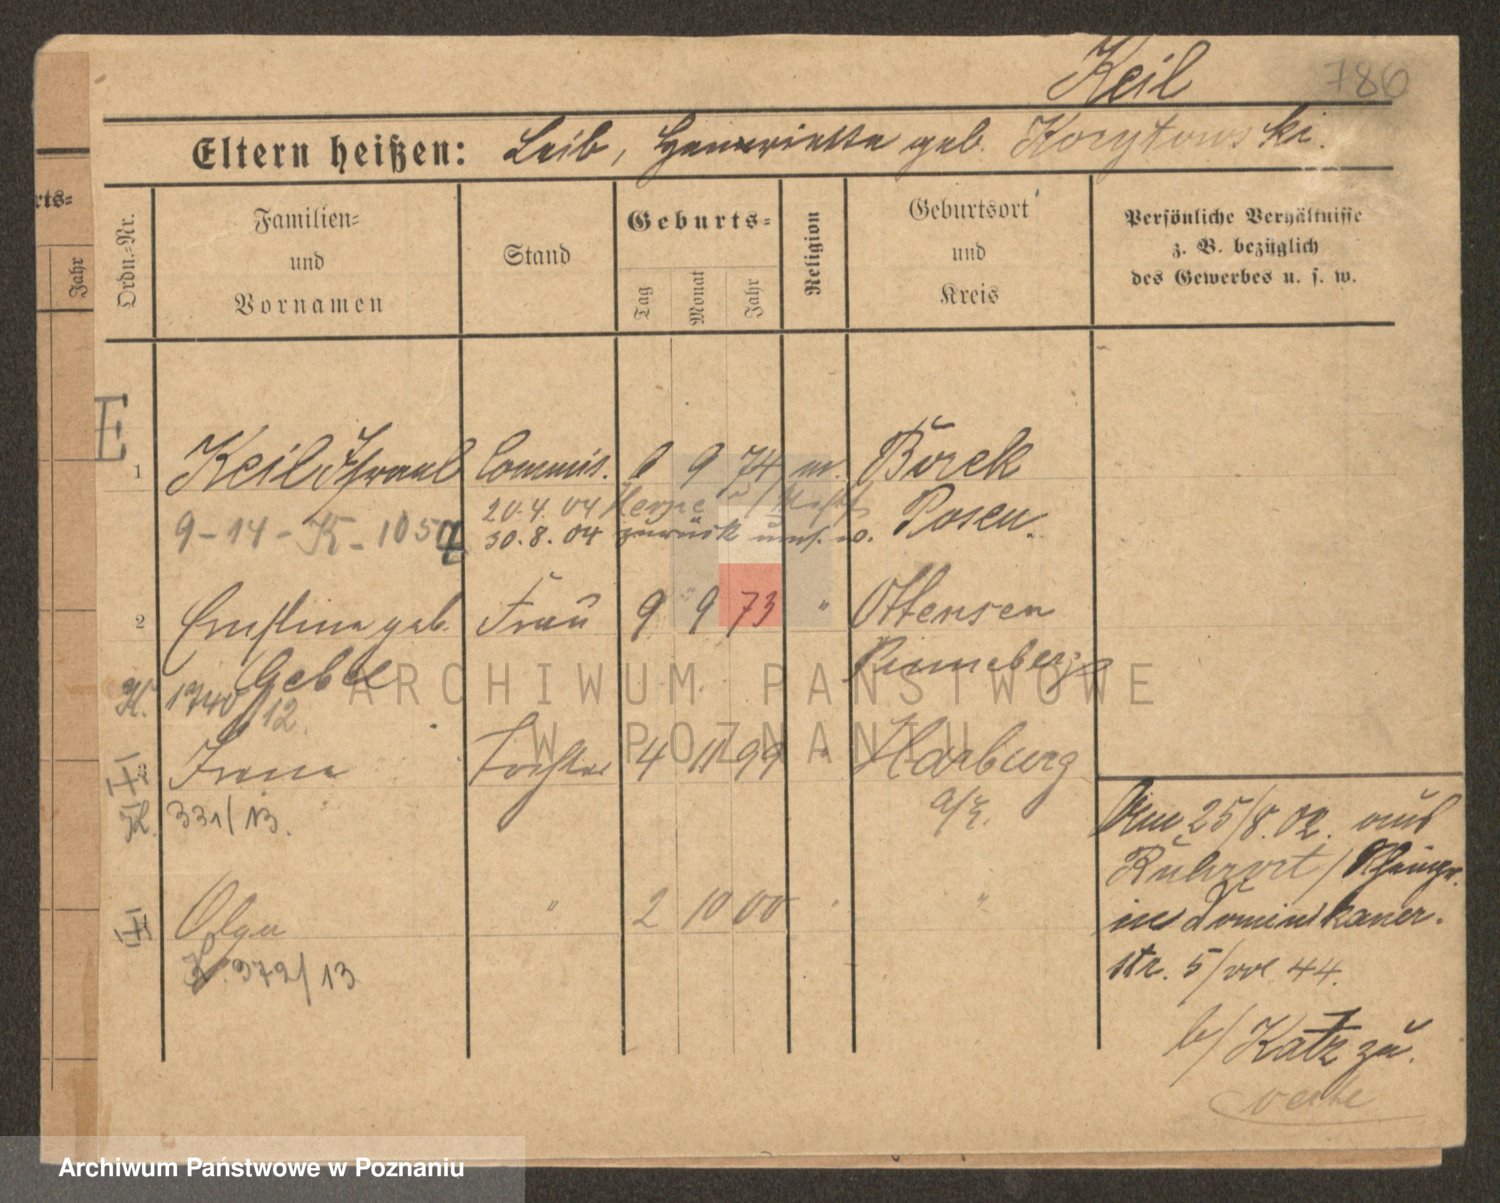 Keil
786
Eltern heißen: Leib, Henriette geb. Korytowski.
rts-
Jahr
Ordn.-Nr.
Familien-
und
Vornamen
Stand
Geburts-
Tag
Monat
Jahr
Religion
Geburtsort
und
Kreis
Persönliche Verhältnisse
z. B. bezüglich
des Gewerbes u. s. w.
E
1 Keil Israel Commis. 9 74 m. Borek
20.4.04
9-14-K-105 Posen.
30.8.04 zurück
2 Ernstine geb. Frau 9 9 73 " Ottensen
Gebel Pinneberg
K. 1740/12.
Irene Tochter 4 11 99 " Harburg
a/E.
K. 331/13.
Am 25/8.02. aus
Ruhrort / Rheinpr.
Olga " 2 10 00 " "
in Dominikaner-
str. 5/
44.
K. 372/13
b/ Katz zu.
ARCHIWUM PAŃSTWOWE
W POZNANIU
Archiwum Państwowe w Poznaniu